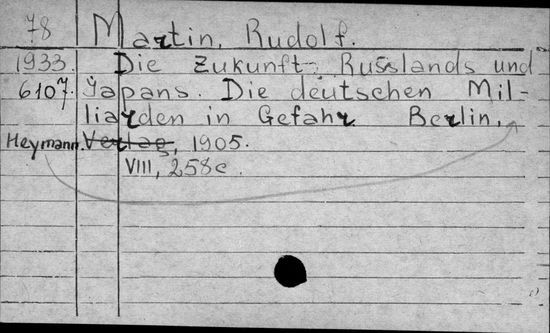 78 Martin, Rudolf.
1933. Die Zukunft Russlands und
6107. Japans. Die deutschen Mil-
liarden in Gefahr. Berlin,
Heymann. Verlag, 1905.
VIII, 258 c.